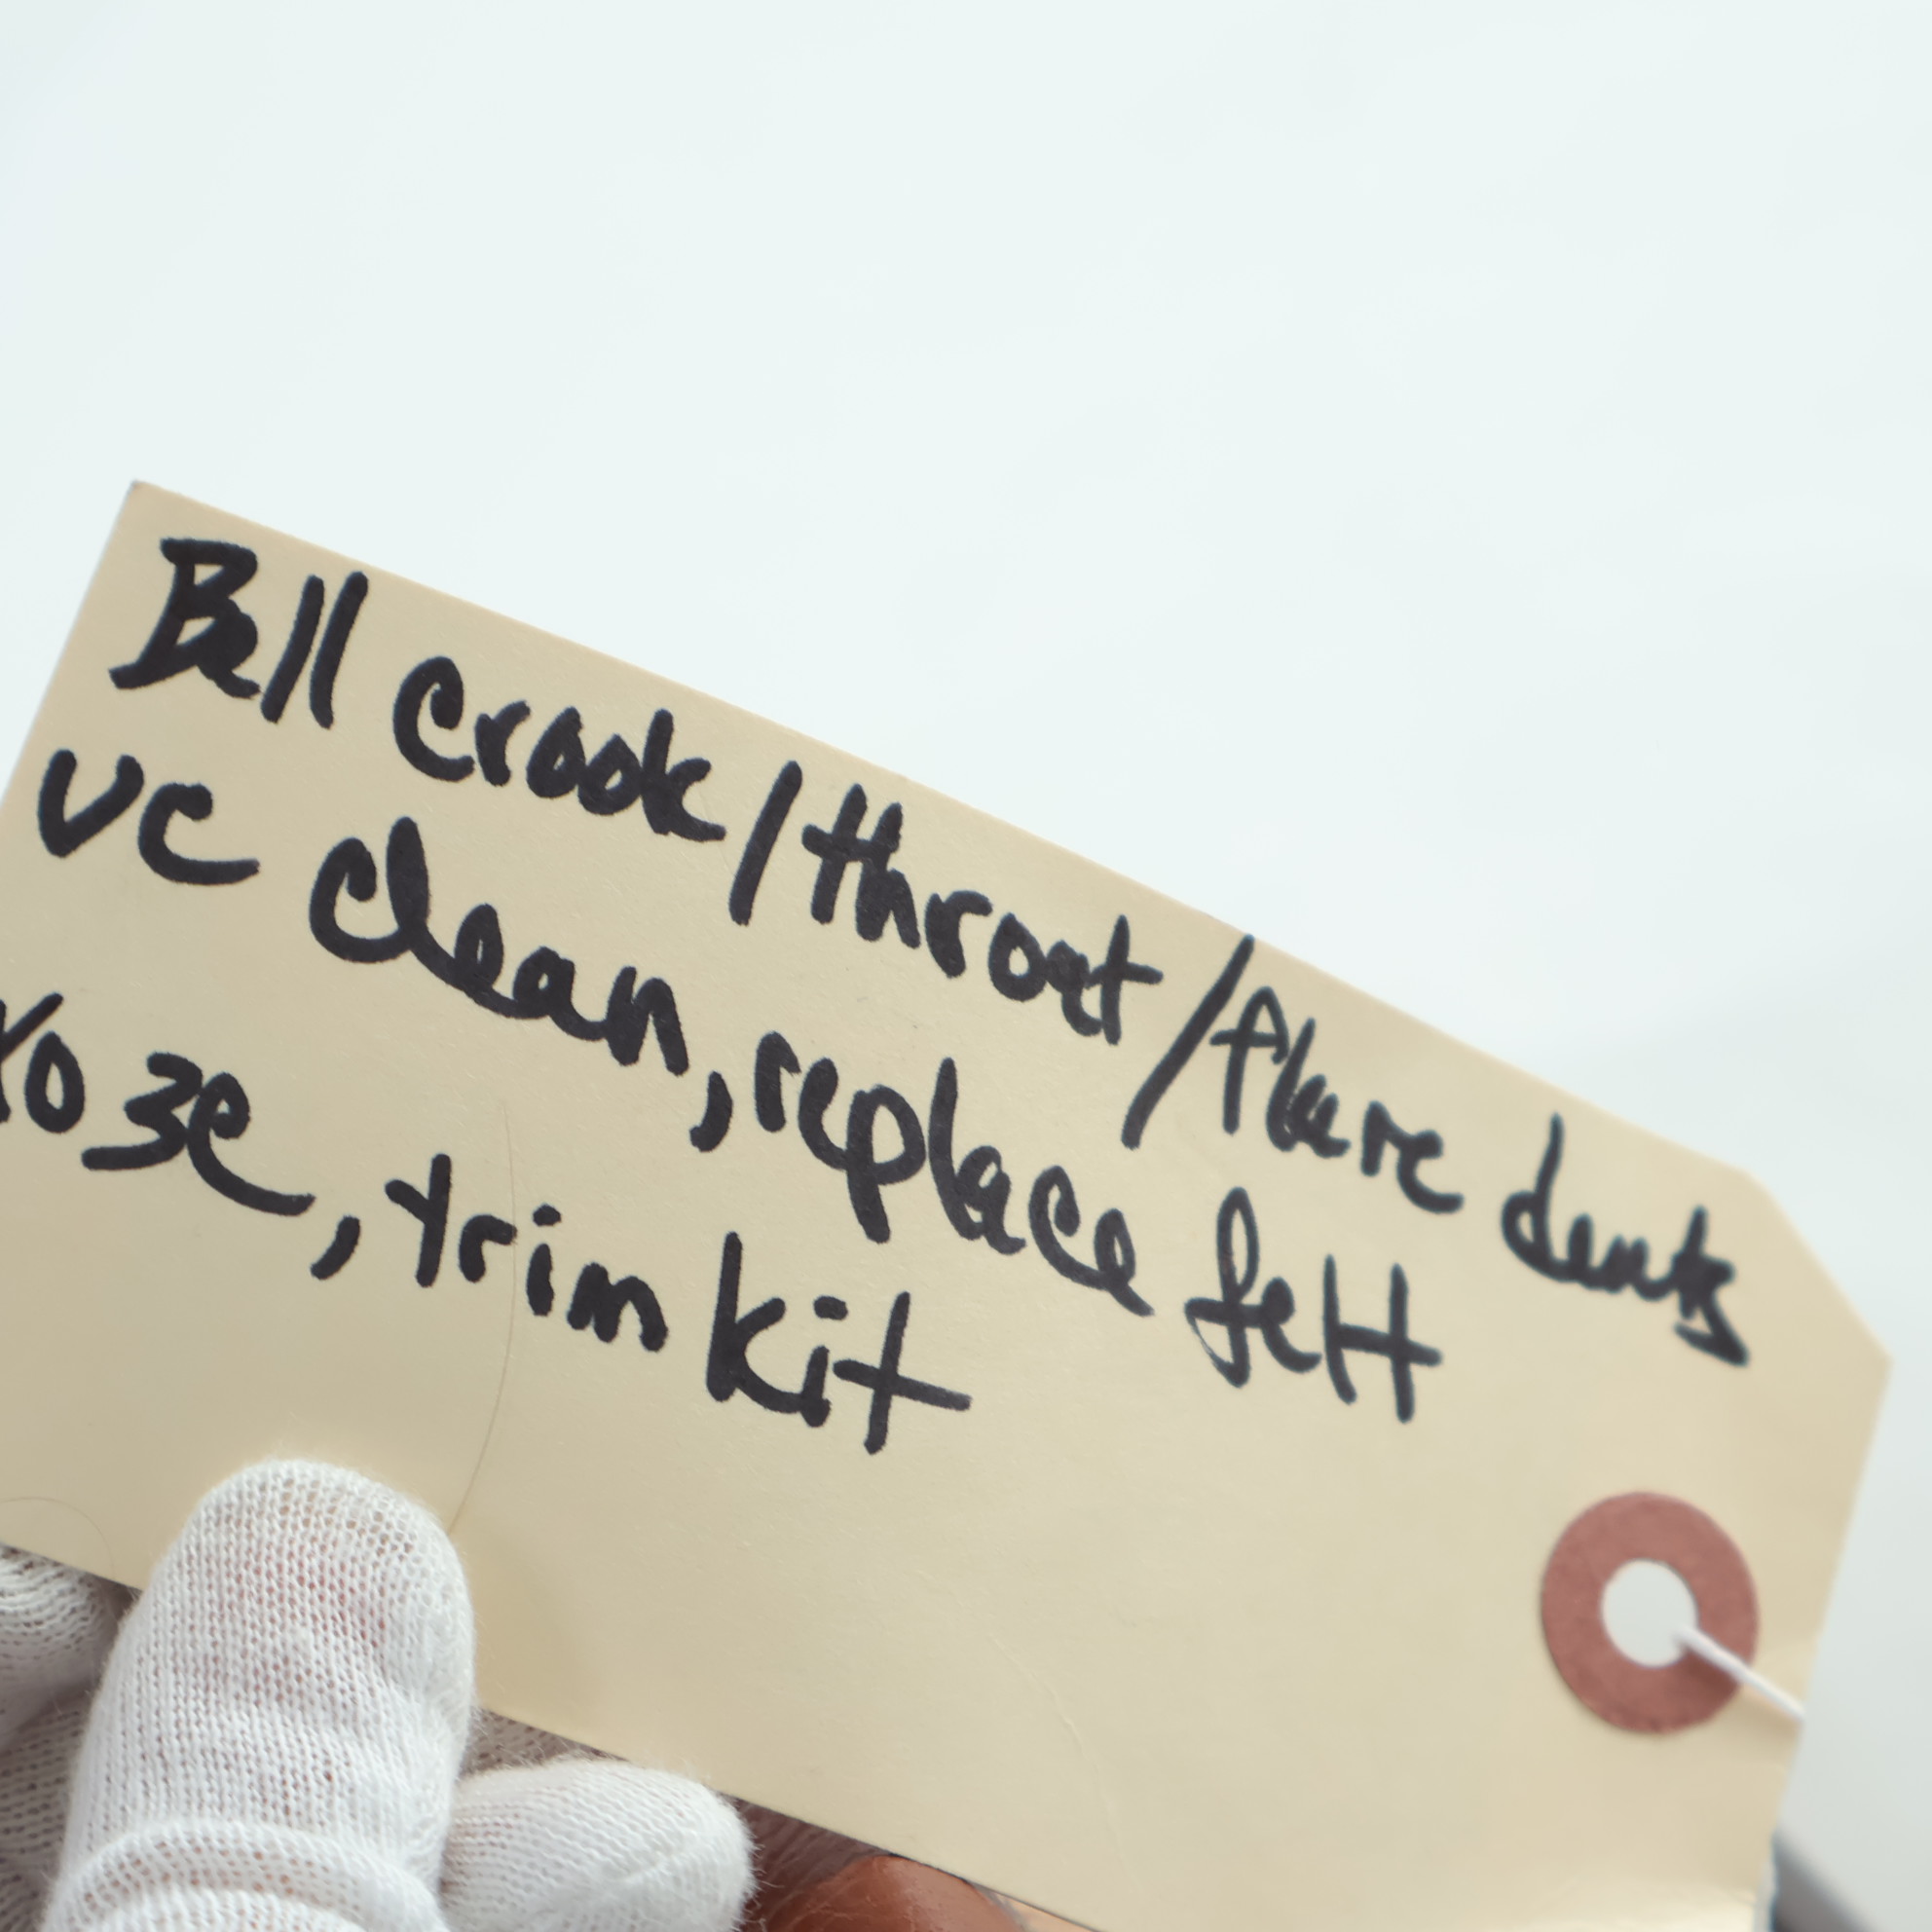 Bell crook/throat/flare dents
UC clean, replace felt
trim kit